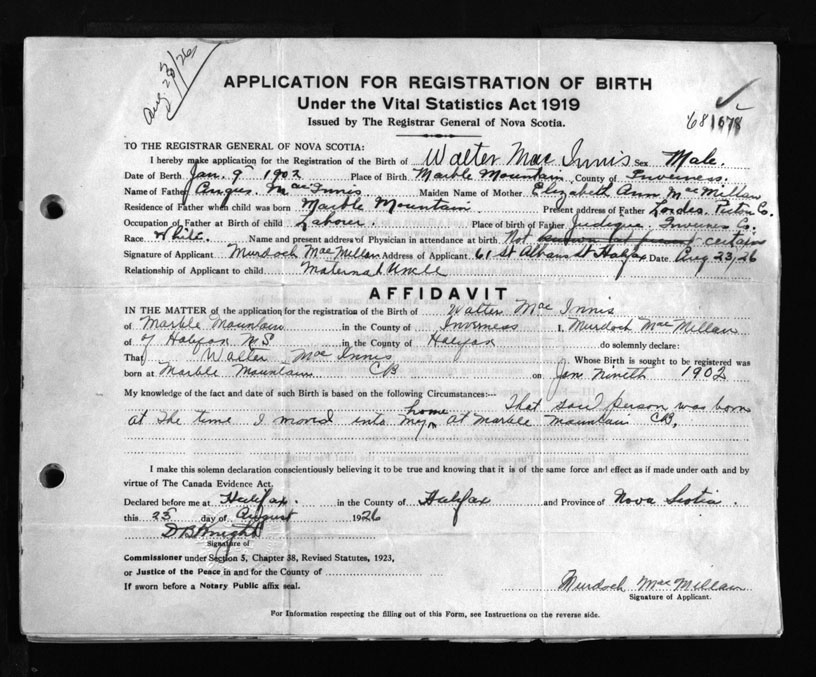 Aug 23/26
APPLICATION FOR REGISTRATION OF BIRTH
Under the Vital Statistics Act 1919
Issued by The Registrar General of Nova Scotia.
TO THE REGISTRAR GENERAL OF NOVA SCOTIA:
I hereby make application for the Registration of the Birth of Walter Mac Innis Sex Male.
Date of Birth Jan. 9 1902 Place of Birth Marble Mountain County of Inverness.
Name of Father Angus. MacInnis Maiden Name of Mother Elizabeth Ann MacMillan
Residence of Father when child was born Marble Mountain Present address of Father Lordes. Pictou Co.
Occupation of Father at Birth of child Laborer. Place of birth of Father Judique. Inverness Co.
Race White. Name and present address of Physician in attendance at birth Not known at present certain
Signature of Applicant Murdoch MacMillan Address of Applicant 61 St Albans St Halifax Date Aug 23/26
Relationship of Applicant to child Maternal Uncle
AFFIDAVIT
IN THE MATTER of the application for the registration of the Birth of Walter Mac Innis
of Marble Mountain in the County of Inverness I, Murdoch MacMillan
of Halifax N.S. in the County of Halifax do solemnly declare:
That Walter Mac Innis Whose Birth is sought to be registered was
born at Marble Mountain CB on Jan Nineth 1902
My knowledge of the fact and date of such Birth is based on the following Circumstances:— That said person was born
at the time I moved into my home at Marble Mountain CB.
I make this solemn declaration conscientiously believing it to be true and knowing that it is of the same force and effect as if made under oath and by
virtue of The Canada Evidence Act.
Declared before me at Halifax. in the County of Halifax and Province of Nova Scotia.
this 23 day of August 1926
D B Knight
Signature of
Commissioner under Section 5, Chapter 38, Revised Statutes, 1923,
or Justice of the Peace in and for the County of
If sworn before a Notary Public affix seal.
Murdoch MacMillan
Signature of Applicant.
For Information respecting the filling out of this Form, see Instructions on the reverse side.